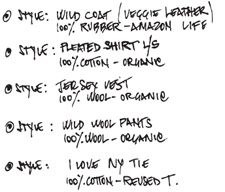 STYLE: WILD COAT (VEGGIE LEATHER)
100% RUBBER - AMAZON LIFE
STYLE: PLEATED SHIRT L/S
100% COTTON - ORGANIC
STYLE: JERSEY VEST
100% WOOL - ORGANIC
STYLE: WILD WOOL PANTS
100% WOOL - ORGANIC
STYLE: I LOVE NY TIE
100% COTTON - REUSED T.